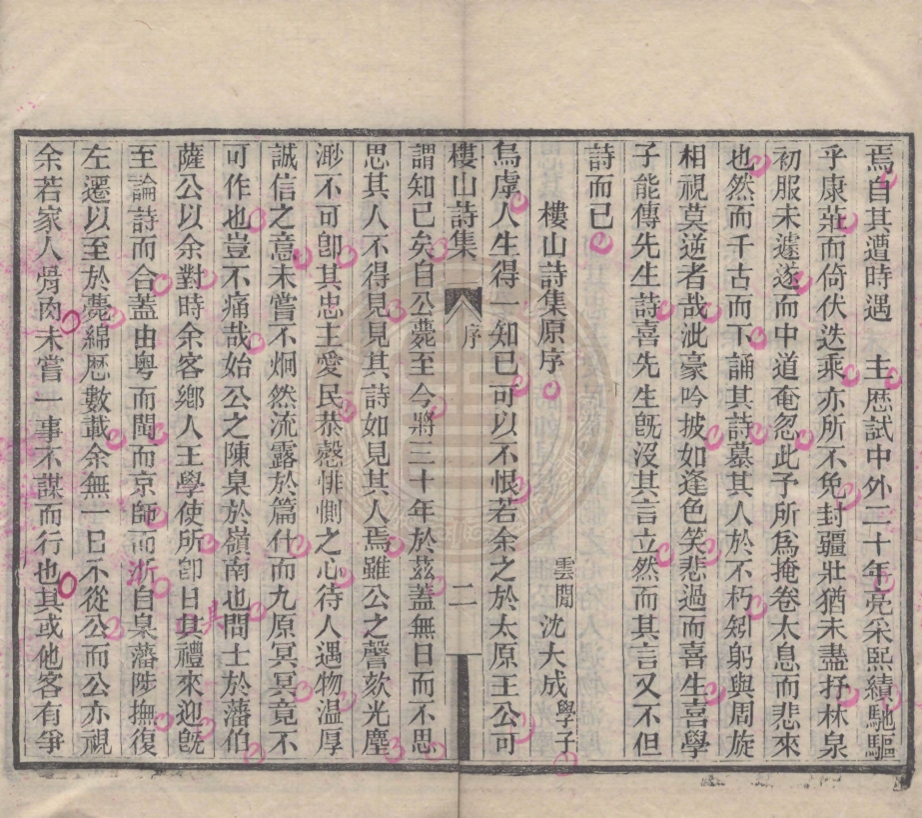 焉自其遭時遇　主歷試中外二十年亮采熙績馳驅
乎康莊而倚伏迭乘亦所不免封疆壯猶未盡抒林泉
初服未遽遂而中道奄忽此予所為掩卷太息而悲來
也然而千古而下誦其詩慕其人於不朽矧躬與周旋
相視莫逆者哉泚豪吟披如逢色笑悲過而喜生喜學
子能傳先生詩喜先生旣沒其言立然而其言又不但
詩而已
樓山詩集原序
雲間沈大成學子
烏虖人生得一知已可以不恨若余之於太原王公可
樓山詩集　序　二
謂知已矣自公薨至今將三十年於茲蓋無日而不思
思其人不得見見其詩如見其人焉雖公之謦欬光塵
渺不可卽其忠主愛民恭慤悱惻之心待人遇物温厚
誠信之意未嘗不烱然流露於篇什而九原冥冥竟不
可作也豈不痛哉始公之陳臬於嶺南也問士於藩伯
薩公以余對時余客鄉人王學使所卽日具禮來迎旣
至論詩而合蓋由粵而閩而京師而浙自臬藩陟撫復
左遷以至於薨綿歷數載余無一日不從公而公亦視
余若家人骨肉未嘗一事不謀而行也其或他客有爭